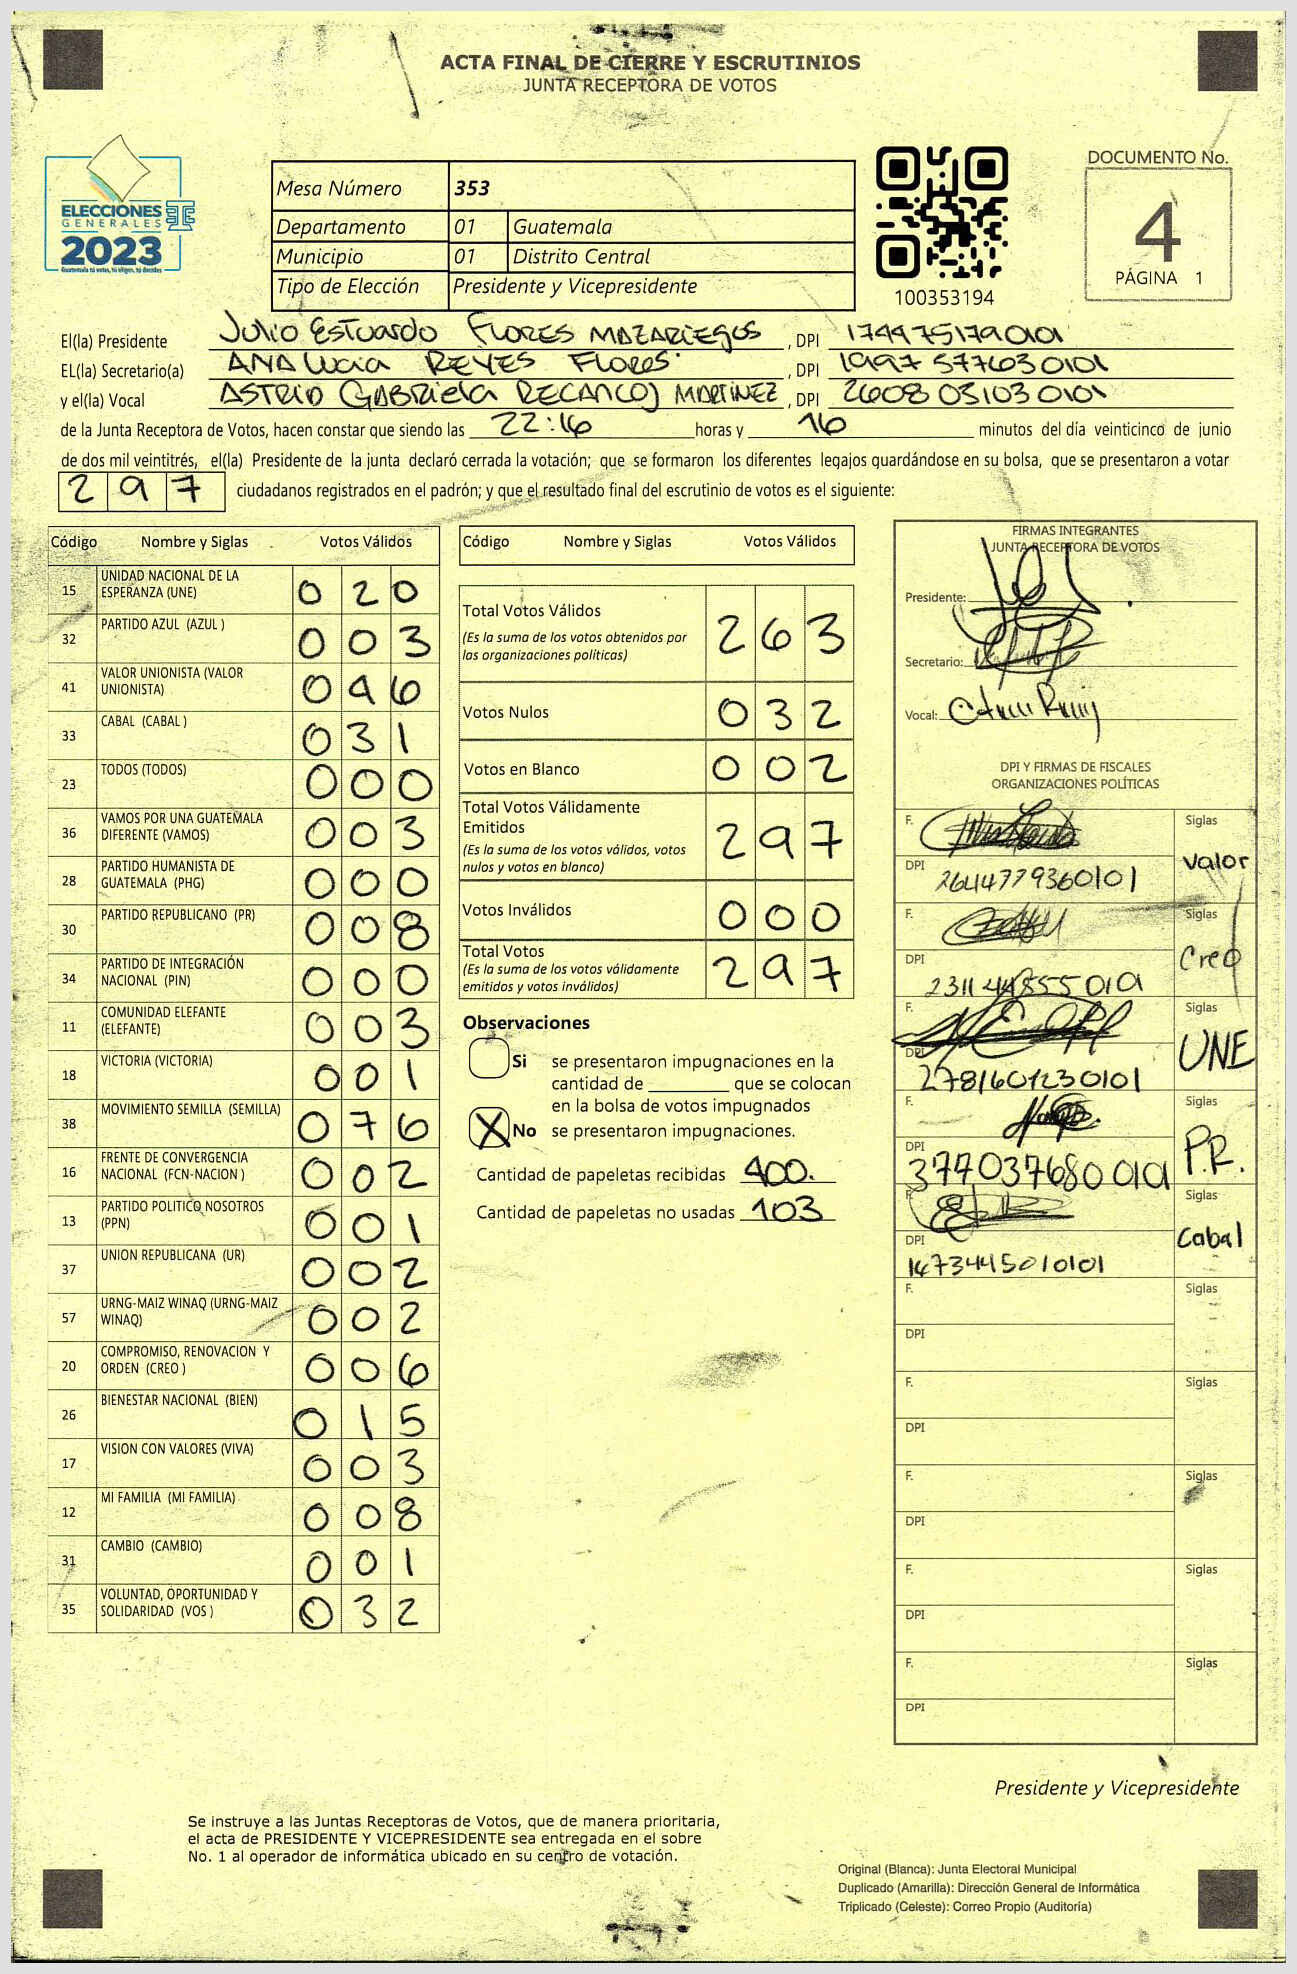 ACTA FINAL DE CIERRE Y ESCRUTINIOS
JUNTA RECEPTORA DE VOTOS
ELECCIONES
GENERALES
2023
Guatemala tú votas, tú eliges, tú decides
Mesa Número 353
Departamento 01 Guatemala
Municipio 01 Distrito Central
Tipo de Elección Presidente y Vicepresidente
100353194
DOCUMENTO No.
4
PÁGINA 1
El(la) Presidente Julio Estuardo FLORES MAZARIEGOS, DPI 174975179 0101
EL(la) Secretario(a) ANA Lucia REYES FLORES, DPI 1997 57763 0101
y el(la) Vocal ASTRID GABRiela RECANCOJ MARTINEZ, DPI 2608 03103 0101
de la Junta Receptora de Votos, hacen constar que siendo las 22:16 horas y 16 minutos del día veinticinco de junio
de dos mil veintitrés, el(la) Presidente de la junta declaró cerrada la votación; que se formaron los diferentes legajos guardándose en su bolsa, que se presentaron a votar
297 ciudadanos registrados en el padrón; y que el resultado final del escrutinio de votos es el siguiente:
Código Nombre y Siglas Votos Válidos
15 UNIDAD NACIONAL DE LA ESPERANZA (UNE) 020
32 PARTIDO AZUL (AZUL ) 003
41 VALOR UNIONISTA (VALOR UNIONISTA) 046
33 CABAL (CABAL ) 031
23 TODOS (TODOS) 000
36 VAMOS POR UNA GUATEMALA DIFERENTE (VAMOS) 003
28 PARTIDO HUMANISTA DE GUATEMALA (PHG) 000
30 PARTIDO REPUBLICANO (PR) 008
34 PARTIDO DE INTEGRACIÓN NACIONAL (PIN) 000
11 COMUNIDAD ELEFANTE (ELEFANTE) 003
18 VICTORIA (VICTORIA) 001
38 MOVIMIENTO SEMILLA (SEMILLA) 076
16 FRENTE DE CONVERGENCIA NACIONAL (FCN-NACION ) 002
13 PARTIDO POLITICO NOSOTROS (PPN) 001
37 UNION REPUBLICANA (UR) 002
57 URNG-MAIZ WINAQ (URNG-MAIZ WINAQ) 002
20 COMPROMISO, RENOVACION Y ORDEN (CREO ) 006
26 BIENESTAR NACIONAL (BIEN) 015
17 VISION CON VALORES (VIVA) 003
12 MI FAMILIA (MI FAMILIA) 008
31 CAMBIO (CAMBIO) 001
35 VOLUNTAD, OPORTUNIDAD Y SOLIDARIDAD (VOS ) 032
Código Nombre y Siglas Votos Válidos
Total Votos Válidos 263
(Es la suma de los votos obtenidos por
las organizaciones políticas)
Votos Nulos 032
Votos en Blanco 002
Total Votos Válidamente
Emitidos 297
(Es la suma de los votos válidos, votos
nulos y votos en blanco)
Votos Inválidos 000
Total Votos 297
(Es la suma de los votos válidamente
emitidos y votos inválidos)
Observaciones
Si se presentaron impugnaciones en la
cantidad de ________ que se colocan
en la bolsa de votos impugnados
X No se presentaron impugnaciones.
Cantidad de papeletas recibidas 400.
Cantidad de papeletas no usadas 103
FIRMAS INTEGRANTES
JUNTA RECEPTORA DE VOTOS
Presidente:
Secretario:
Vocal:
DPI Y FIRMAS DE FISCALES
ORGANIZACIONES POLÍTICAS
F. Siglas
DPI 2644779360101 Valor
F. Siglas
DPI 2311 44855 0101 Creo
F. Siglas
DPI 2781601230101 UNE
F. Siglas
DPI 377037680 0101 P.R.
F. Siglas
DPI 1473445010101 Cabal
F. Siglas
DPI
F. Siglas
DPI
F. Siglas
DPI
F. Siglas
DPI
F. Siglas
DPI
Presidente y Vicepresidente
Se instruye a las Juntas Receptoras de Votos, que de manera prioritaria,
el acta de PRESIDENTE Y VICEPRESIDENTE sea entregada en el sobre
No. 1 al operador de informática ubicado en su centro de votación.
Original (Blanca): Junta Electoral Municipal
Duplicado (Amarilla): Dirección General de Informática
Triplicado (Celeste): Correo Propio (Auditoría)